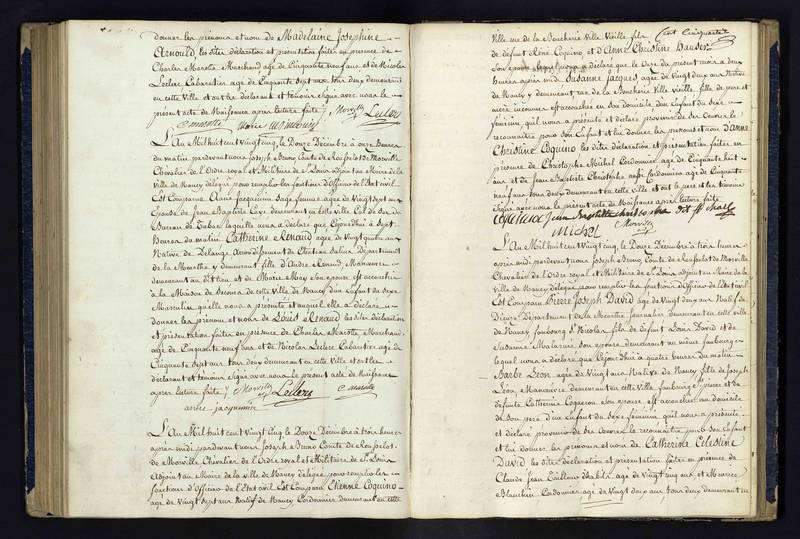 donner les prénoms et nom de Madelaine Josephine
Arnould les dites déclaration et présentation faites en présence de
Charles Marotte Marchand age de Cinquante neuf ans et de Nicolas
Leclerc Cabaretier age de Cinquante Sept ans tous deux demeurant
en cette Ville et ont le déclarant et témoins signé avec nous le
présent acte de Naissance après lecture faite / Morville
C marotte Leclerc
L'An Mil huit cent vingt cinq, le Douze Décembre à onze heures
du matin pardevant nous Joseph Bruno Comte de Rosselot de Morville
Chevalier de l'Ordre royal et Militaire de St Louis adjoint au Maire de la
Ville de Nancy délégué pour remplir les fonctions d'Officier de l'Etat civil
Est Comparue Anne Jacquemin Sage femme agée de Vingt sept ans
Epouse de Jean Baptiste Caye demeurant en cette Ville
laquelle nous a déclaré que Cejourd'hui à Sept
heures du matin Catherine Renaud agée de Vingt quatre ans
Native de Delange arrondissement de Château Salins Département
de la Meurthe y demeurant fille d'André Renaud, Manoeuvre
demeurant au dit lieu, et de Marie May son épouse est accouchée
à la Maison de Secours de cette Ville de Nancy d'un Enfant du Sexe
Masculin qu'elle nous a présenté et auquel elle a déclaré
donner les prénoms et nom de Louis Renaud les dites déclaration
et présentation faites en présence de Charles Marotte Marchand
age de Cinquante neuf ans et de Nicolas Leclerc Cabaretier age de
Cinquante Sept ans tous deux demeurant en cette Ville et ont les
déclarant et témoins signé avec nous le présent acte de Naissance
après lecture faite / Morville Leclerc C marotte
L'An Mil huit cent Vingt Cinq le Douze Décembre à trois heures
après midi pardevant nous Joseph Bruno Comte de Rosselot
de Morville, Chevalier de l'Ordre royal et Militaire de St Louis
Adjoint au Maire de la Ville de Nancy délégué pour remplir les
fonctions d'Officier de l'Etat civil Est Comparu Etienne Coquino
age de Vingt sept ans Natif de Nancy Cordonnier demeurant en cette
cent Cinquante
Ville rue de la Boucherie Ville Vieille fils
de défunt Réné Coquino, et d'Anne Christine Hauser
Son épouse lequel nous a déclaré que le Onze du présent mois à deux
heures après midi Susanne Jacques agée de Vingt deux ans Native
de Nancy y demeurant rue de la Boucherie Ville vieille, fille de père et
mère inconnus est accouchée en son domicile d'un Enfant du Sexe
féminin, qu'il nous a présenté et déclaré provenir de Ses Oeuvres le
reconnaître pour son Enfant et lui donner les prénoms et nom d'Anne
Christine Coquino les dites déclaration et présentation faites en
présence de Christophe Michel Cordonnier age de Cinquante huit
ans et de Jean Baptiste Christophe aussi Cordonnier age de Cinquante
neuf ans tous deux demeurant en cette Ville et ont le père et les témoins
signé avec nous le présent acte de Naissance après lecture faite
Jean Baptiste Christophe
Michel Morville
L'An Mil huit cent vingt cinq, le Douze Décembre à trois heures
après midi pardevant nous Joseph Bruno Comte de Rosselot de Morville
Chevalier de l'Ordre royal et Militaire de St Louis adjoint au Maire de la
Ville de Nancy délégué pour remplir les fonctions d'Officier de l'Etat civil
Est Comparu Pierre Joseph David age de Vingt deux ans Natif de
Dieuze Département de la Meurthe Journalier demeurant en cette ville
de Nancy faubourg St Nicolas fils de défunt Louis David et de
Susanne Malarmé Son épouse demeurant au même faubourg
lequel nous a déclaré que Cejourd'hui à quatre heures du matin
Barbe Léon agée de Vingt ans Native de Nancy fille de Joseph
Léon Manoeuvre demeurant en cette Ville faubourg St pierre et de
défunte Catherine Coqueron Son épouse est accouchée au domicile
de Son père d'un Enfant du Sexe féminin, qu'il nous a présenté
et déclaré provenir de Ses Oeuvres le reconnaître pour Son Enfant
et lui donner les prénoms et nom de Catherine Celestine
David les dites déclaration et présentation faites en présence de
Claude Jean Tailleur d'habits agé de Vingt cinq ans, et Maurice
Blanchin Cordonnier agé de Vingt deux ans, tous deux demeurant en